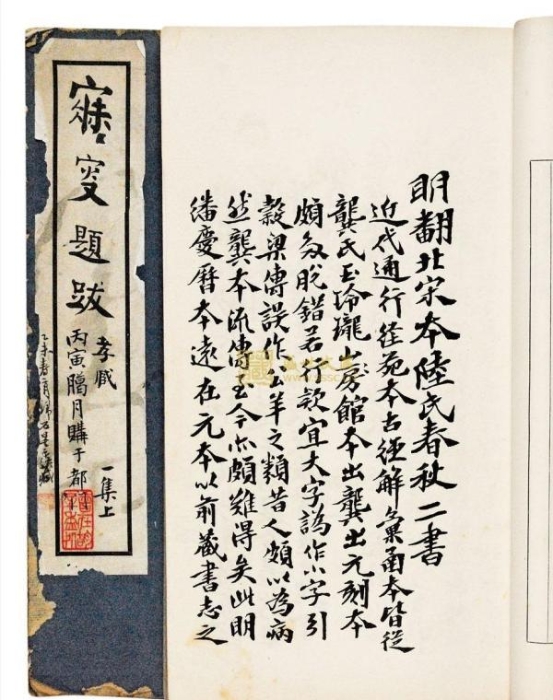 明翻北宋本陸氏春秋二書
近代通行経苑本古經解彙函本皆從
龔氏玉玲瓏山房館本出龔出元刻本
頗多脫錯若行款宜大字譌作小字引
穀梁傳誤作公羊之類昔人頗以為病
然龔本流傳至今亦頗難得矣此明
繙慶曆本遠在元本以前藏書志之
一集上
寐叟題跋
孝臧
丙寅臘月購于都
乙未春二月歸石